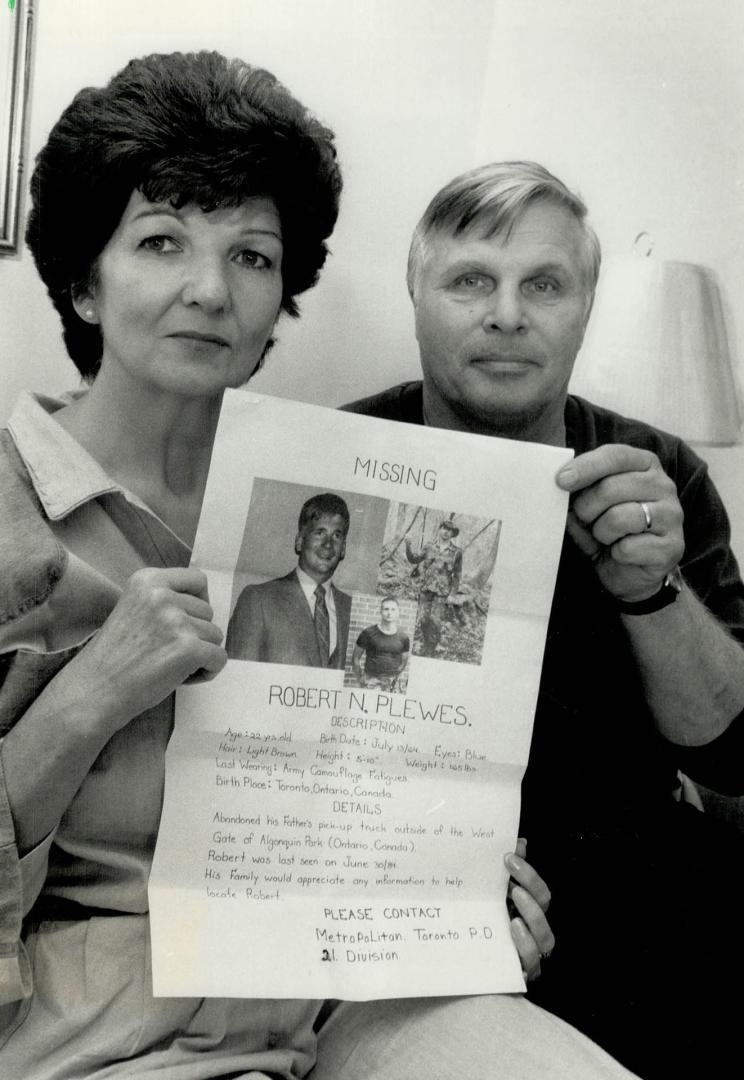 MISSING
ROBERT N. PLEWES.
DESCRIPTION
Age: 22 yrs. old. Birth Date: July 13/64. Eyes: Blue
Hair: Light Brown Height: 5-10" Weight: 165 lbs.
Last Wearing: Army Camouflage Fatigues.
Birth Place: Toronto, Ontario, Canada.
DETAILS
Abandoned his Father's pick-up truck outside of the West
Gate of Algonquin Park (Ontario, Canada).
Robert was last seen on June 30/84.
His Family would appreciate any information to help
locate Robert.
PLEASE CONTACT
Metropolitan. Toronto. P.D.
21. Division.